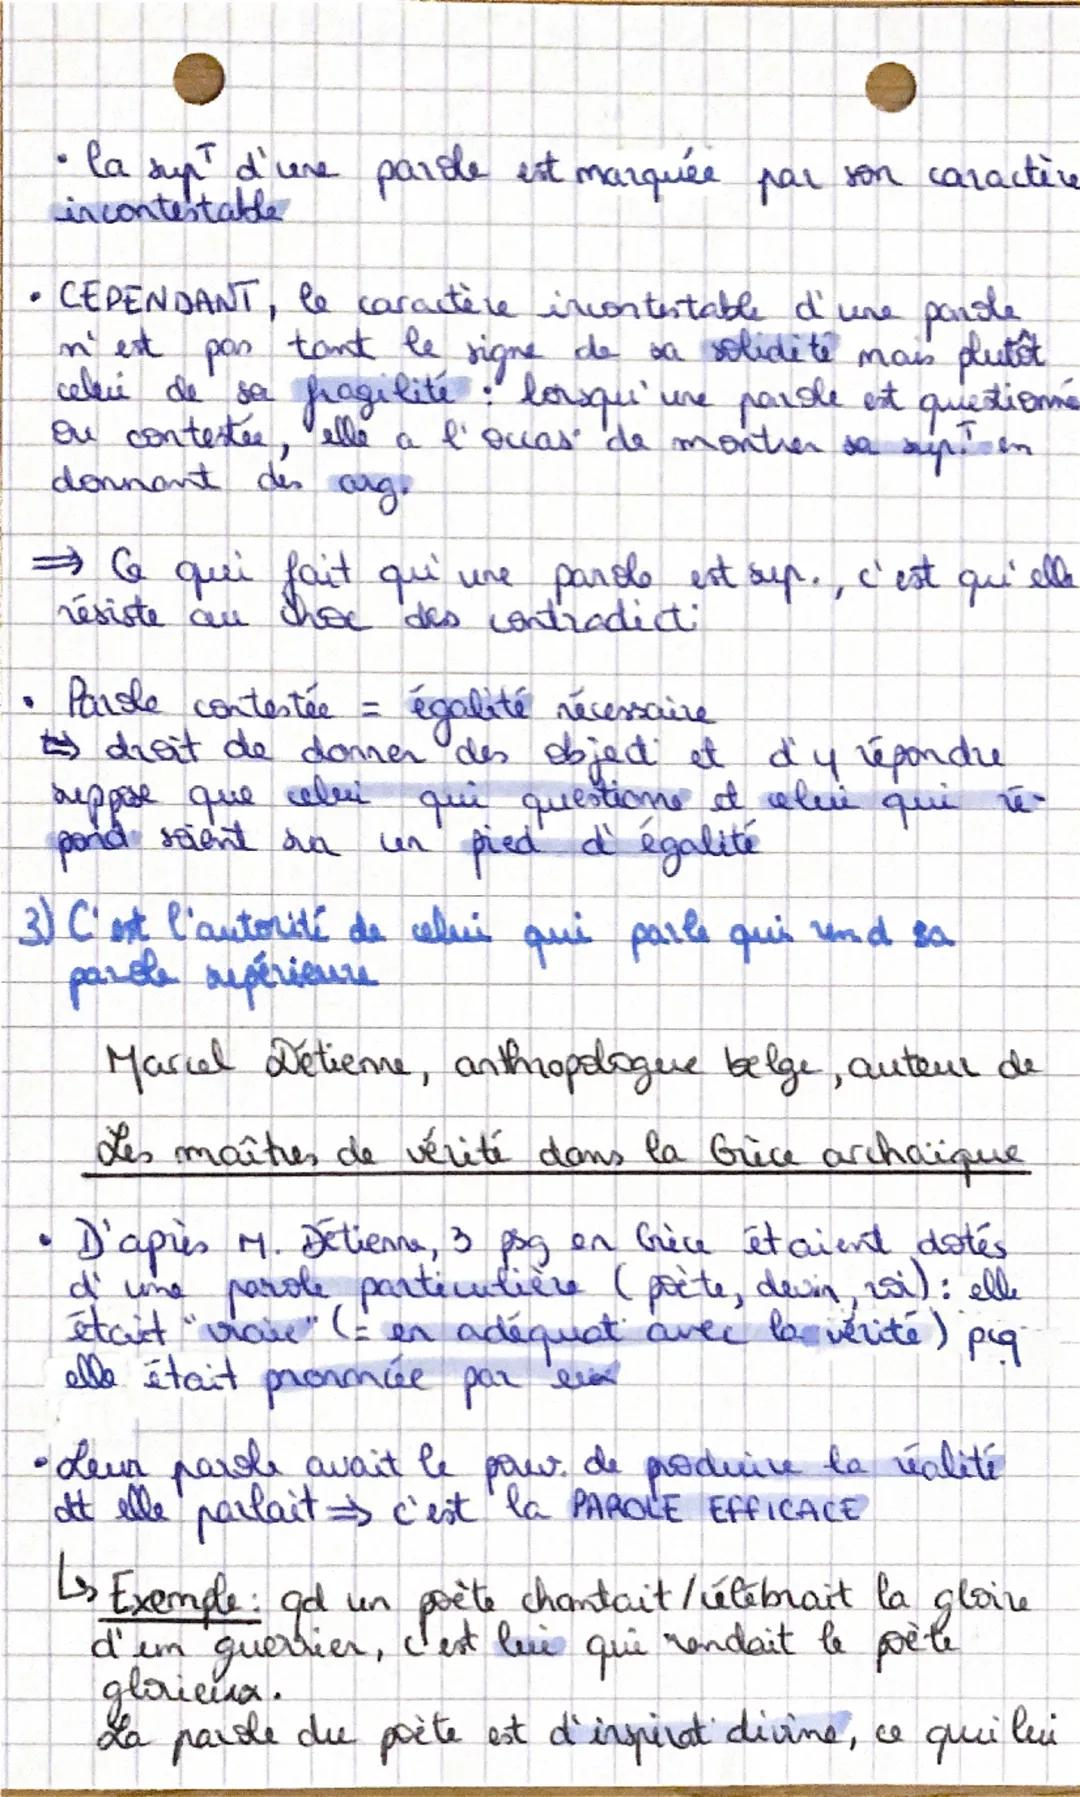 • la sup^T d'une parole est marquée par son caractère
incontestable
• CEPENDANT, le caractère incontestable d'une parole
n'est pas tant le signe de sa solidité mais plutôt
celui de sa fragilité : lorsqu'une parole est questionné
ou contestée, elle a l'occas° de montrer sa sup^T en
donnant des arg.
⇒ Ce qui fait qu'une parole est sup., c'est qu'elle
résiste au choc des contradict°
• Parole contestée = égalité nécessaire
↳ droit de donner des object° et d'y répondre
suppose que celui qui questionne et celui qui ré-
pond soient sur un pied d'égalité
3) C'est l'autorité de celui qui parle qui rend sa
parole supérieure
Marcel Détienne, anthropologue belge, auteur de
Les maîtres de vérité dans la Grèce archaïque
• D'après M. Détienne, 3 psg en Grèce étaient dotés
d'une parole particulière (poète, devin, roi) : elle
était "vraie" (= en adéquat° avec la vérité) pcq
elle était prononcée par eux
• Leur parole avait le pouv. de produire la réalité
dt elle parlait ⇒ c'est la PAROLE EFFICACE
↳ Exemple : qd un poète chantait/célébrait la gloire
d'un guerrier, c'est lui qui rendait le poète
glorieux.
La parole du poète est d'inspirat° divine, ce qui lui